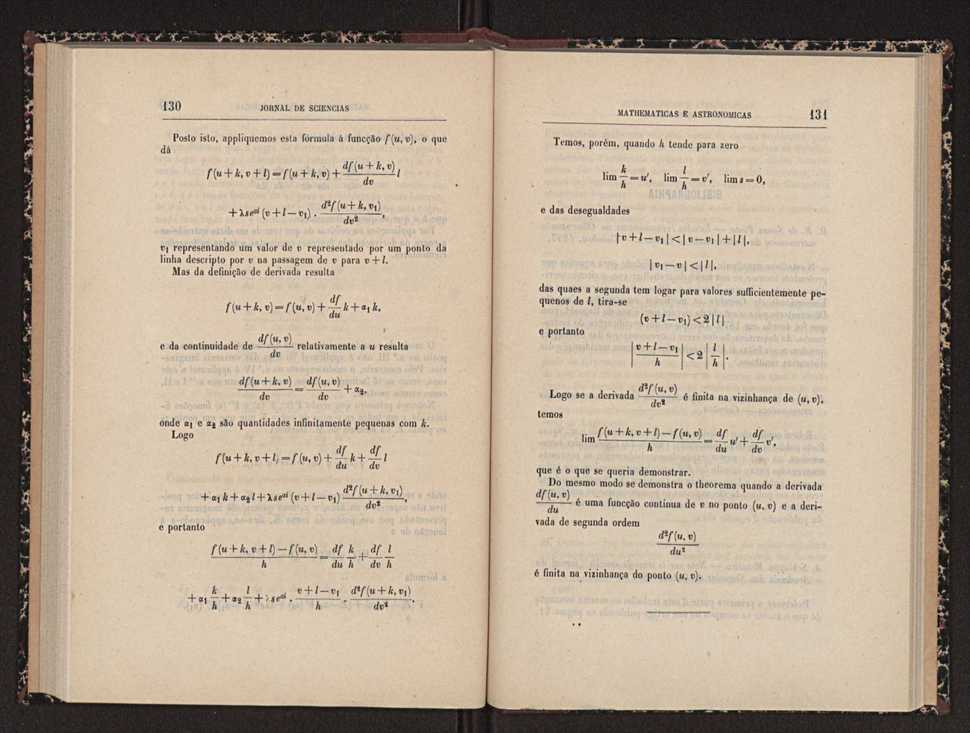 130 JORNAL DE SCIENCIAS
Posto isto, appliquemos esta fórmula á funcção f(u, v), o que
dá
f(u + k, v + l) = f(u + k, v) + df(u + k, v)/dv l
+ λse^ωi (v + l — v₁) . d²f(u + k, v₁)/dv²,
v₁ representando um valor de v representado por um ponto da
linha descripto por v na passagem de v para v + l.
Mas da definição de derivada resulta
f(u + k, v) = f(u, v) + df/du k + α₁ k,
e da continuidade de df(u, v)/dv relativamente a u resulta
df(u + k, v)/dv = df(u, v)/dv + α₂,
onde α₁ e α₂ são quantidades infinitamente pequenas com k.
Logo
f(u + k, v + l) = f(u, v) + df/du k + df/dv l
+ α₁ k + α₂ l + λse^ωi (v + l — v₁) d²f(u + k, v₁)/dv²,
e portanto
f(u + k, v + l) — f(u, v)/h = df/du k/h + df/dv l/h
+ α₁ k/h + α₂ l/h + λse^ωi . v + l — v₁/h . d²f(u + k, v₁)/dv².
MATHEMATICAS E ASTRONOMICAS 131
Temos, porém, quando h tende para zero
lim k/h = u', lim l/h = v', lim s = 0,
e das desegualdades
| v + l — v₁ | < | v — v₁ | + | l |,
| v₁ — v | < | l |,
das quaes a segunda tem logar para valores sufficientemente pe-
quenos de l, tira-se
(v + l — v₁) < 2 | l |
e portanto
| v + l — v₁/h | < 2 | l/h |.
Logo se a derivada d²f(u, v)/dv² é finita na vizinhança de (u, v),
temos
lim f(u + k, v + l) — f(u, v)/h = df/du u' + df/dv v',
que é o que se queria demonstrar.
Do mesmo modo se demonstra o theorema quando a derivada
df(u, v)/du é uma funcção continua de v no ponto (u, v) e a deri-
vada de segunda ordem
d²f(u, v)/du²
é finita na vizinhança do ponto (u, v).